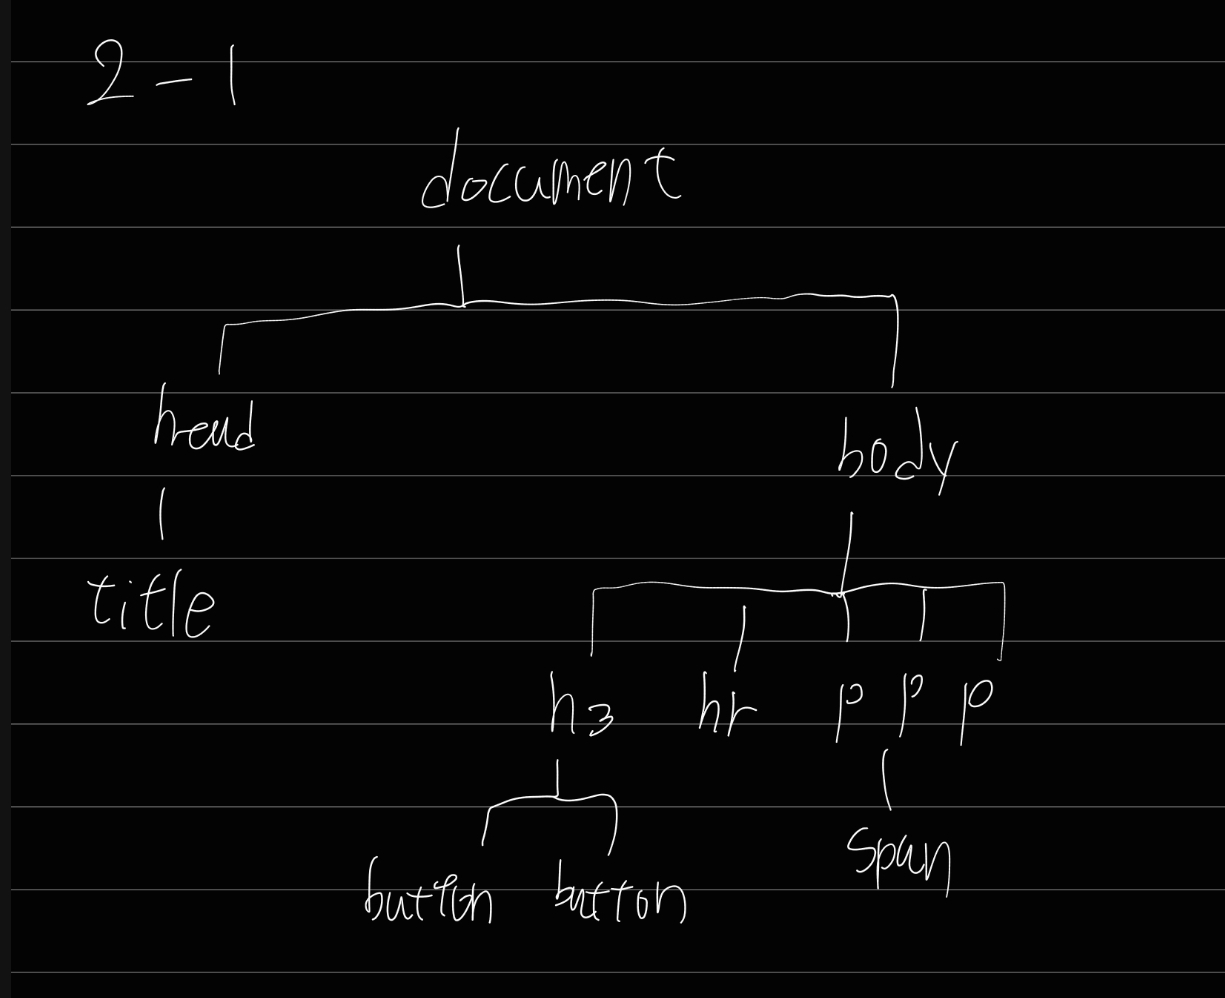 2-1
document
head
body
title
h3 hr p p p
span
button button